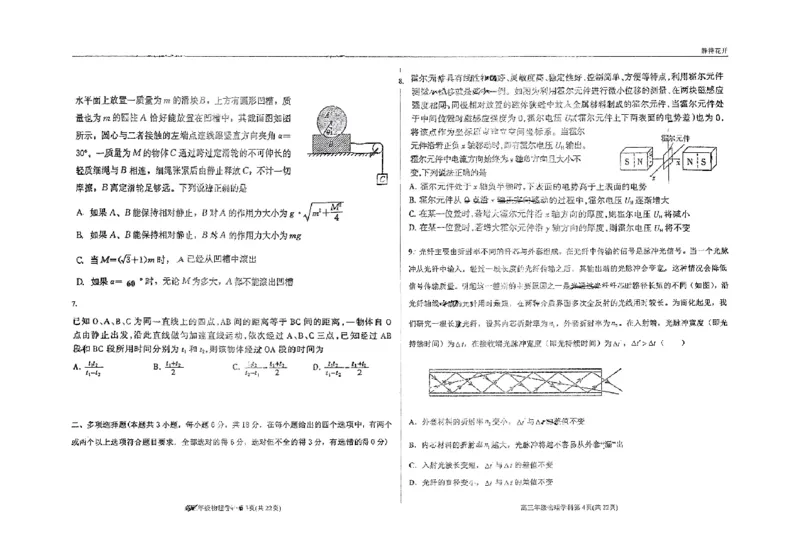 静待花开
水平面上放置一质量为m的滑块B，上方有圆形凹槽，质
量也为m的圆柱A恰好能放置在凹槽中，其截面图如图
所示，圆心与二者接触的左端点连线跟竖直方向夹角α=
30°，一质量为M的物体C通过跨过定滑轮的不可伸长的
轻质细绳与B相连，细绳张紧后由静止释放C，不计一切
摩擦，B离定滑轮足够远。下列说法正确的是
A. 如果A、B能保持相对静止，B对A的作用力大小为g√m²+M²/4
B. 如果A、B能保持相对静止，B对A的作用力大小为mg
C. 当M=(√3+1)m时，A已经从凹槽中滚出
D. 如果α= 60 °时，无论M为多大，A都不能滚出凹槽
A
B
C
7.
已知O、A、B、C为同一直线上的四点，AB间的距离等于BC间的距离，一物体自O
点由静止出发，沿此直线做匀加速直线运动，依次经过A、B、C三点，已知经过AB
段和BC段所用时间分别为t₁和t₂，则该物体经过OA段的时间为
二、多项选择题(本题共3小题，每小题6分，共18分。在每小题给出的四个选项中，有两个
或两个以上选项符合题目要求。全部选对的得6分，选对但不全的得3分，有选错的得0分)
3页(共22页)
8.
霍尔元件具有线性和
灵敏度高、稳定性好、控制简单、方便等特点，利用霍尔元件
例。如图为利用霍尔元件进行微小位移的测量。在两块磁感应
强度相同，同极相对放置的磁体狭缝中放入金属材料制成的霍尔元件，当霍尔元件处
于中间位置时磁感应强度为0，霍尔电压UH(霍尔元件上下两表面的电势差)也为0，
将该点作为坐标原点建立空间坐标系。当霍尔
元件沿着正负x轴移动时，即有霍尔电压UH输出。
霍尔元件中电流方向始终为z轴负方向且大小不
变，下列说法正确的是
霍尔元件
S N
N S
A. 霍尔元件处于x轴负半轴时，下表面的电势高于上表面的电势
B. 霍尔元件从O点沿x轴正方向移动的过程中，霍尔电压UH逐渐增大
C. 在某一位置时，若增大霍尔元件沿x轴方向的厚度，则霍尔电压UH将减小
D. 在某一位置时，若增大霍尔元件沿y轴方向的厚度，霍尔电压UH将不变
9. 光纤主要由折射率不同的纤芯与外套组成，在光纤中传输的信号是脉冲光信号。当一个光脉
冲从光纤中输入，经过一段长度的光纤传输之后，其输出端的光脉冲会变宽，这种情况会降低
信号传输质量。引起这一差别的主要原因之一是光通过光纤纤芯时路径长短的不同（如图），沿
光纤轴线传输的光纤用时最短，在两种介质界面多次全反射的光线用时较长。为简化起见，我
们研究一根长直光纤，设其内芯折射率为n₁，外套折射率为n₂。在入射端，光脉冲宽度（即光
持续时间）为Δt，在接收端光脉冲宽度（即光持续时间）为Δt′，Δt′>Δt（　　）
A. 外套材料的折射率n₂变小，Δt′与Δt的差值不变
B. 内芯材料的折射率n₁越大，光脉冲将越不容易从外套“漏”出
C. 入射光波长变短，Δt′与Δt的差值不变
D. 光纤的直径变小，Δt′与Δt的差值不变
第4页(共22页)